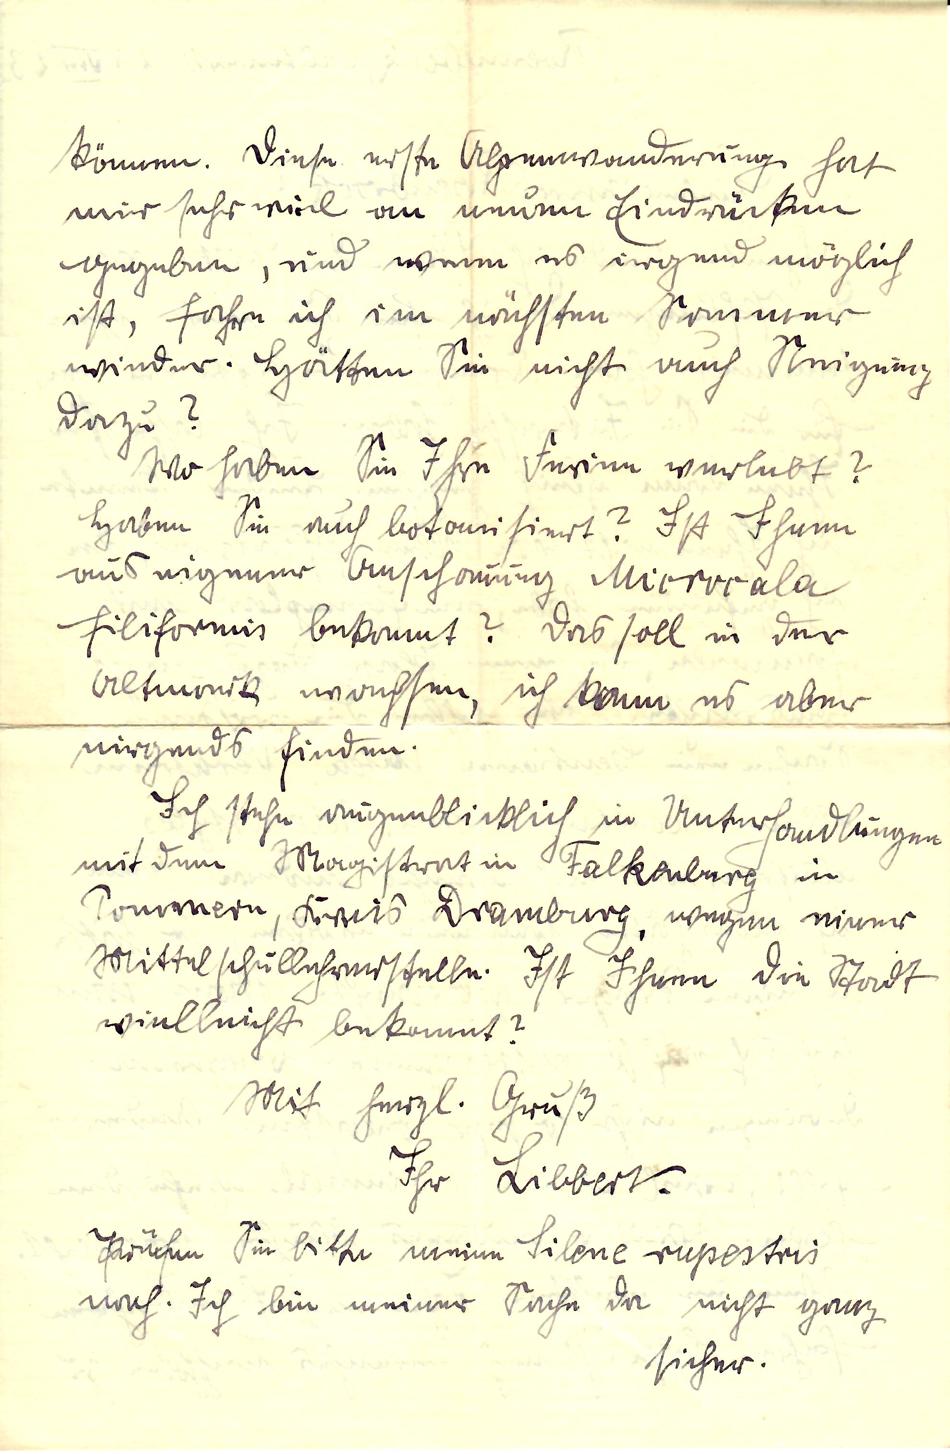 können. Diese erste Alpenwanderung hat
mir sehr viel an neuen Eindrücken
gegeben, und wenn es irgend möglich
ist, fahre ich im nächsten Sommer
wieder. Hätten Sie nicht auch Neigung
dazu?
Wo haben Sie Ihre Ferien verlebt?
Haben Sie auch botanisiert? Ist Ihnen
aus eigener Anschauung Microcala
filiformis bekannt? Das soll in der
Altmark wachsen, ich kann es aber
nirgends finden.
Ich stehe augenblicklich in Unterhandlungen
mit dem Magistrat in Falkenburg in
Pommern, Kreis Dramburg, wegen einer
Mittelschullehrerstelle. Ist Ihnen die Stadt
vielleicht bekannt?
Mit herzl. Gruß
Ihr Libbert.
Prüfen Sie bitte meine Silene rupestris
nach. Ich bin meiner Sache da nicht ganz
sicher.